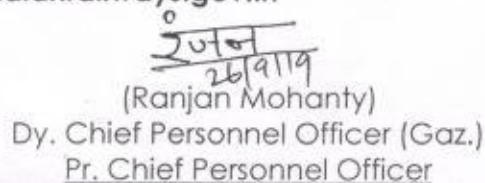 रंजन
26/9/19
(Ranjan Mohanty)
Dy. Chief Personnel Officer (Gaz.)
Pr. Chief Personnel Officer